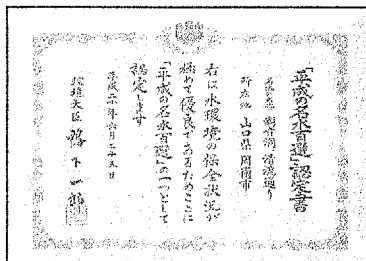 「平成の名水百選」認定書
名水の名称 潮音洞、清流通り
所在地 山口県周南市
右は水環境の保全状況が
極めて優良であるためここに
「平成の名水百選」の一つとして
認定します
平成二十年六月二十五日
環境大臣 鴨下一郎